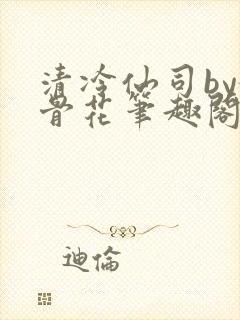 清冷仙司by
骨花笔趣阁
迪倫